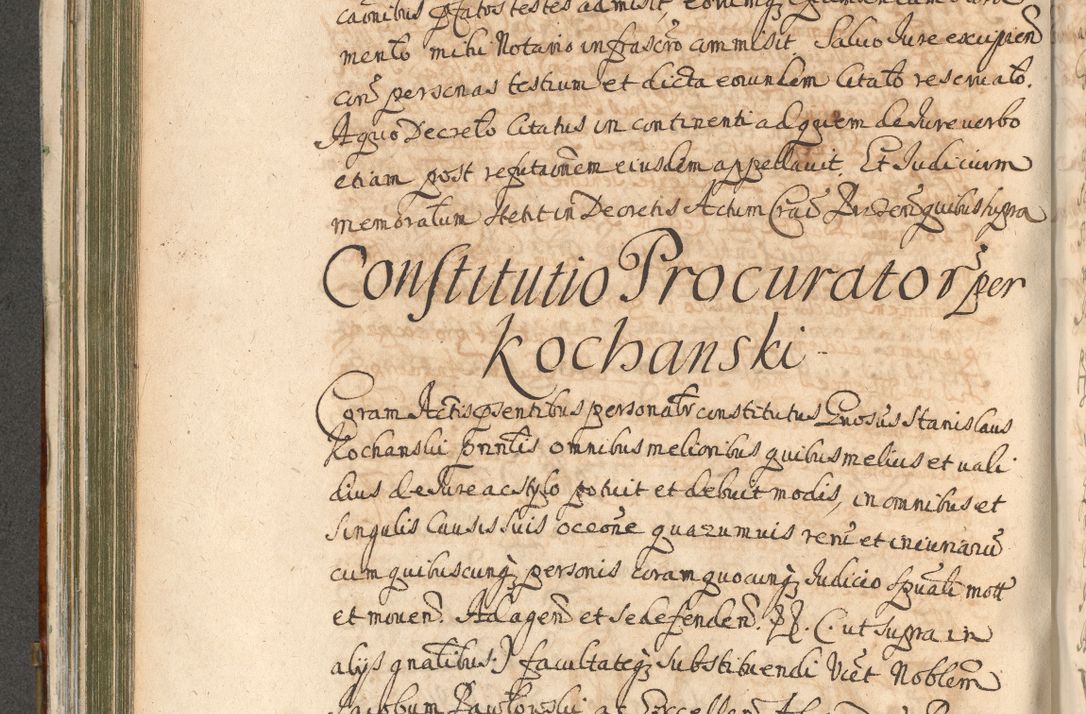 mento mihi Notario infrascro ammisit, Saluo Iure excipien
con personas testium et dicta eorundem Citato reseruato.
A quo Decreto Citatus in continenti ad quem de Iure uerbo
etiam post reputaonem eiusdem appellauit, Et Iudicium
memoratum stetit in Decretis Actum Crae Praesen quibus supra
Constitutio Procurator per
Kochanski
Coram Actis psentibus personalr constitutus Gnosus Stanislaus
Kochanski omnibus melioribus quibus melius et uali
dius de Iure ac stylo potuit et debuit modis, in omnibus et
singulis Causis suis oceone quarumuis reru et iniuriaru
cum quibuscunq personis coram quocunq Iudicio spuali mott
et mouen. Ad agen et se defenden. PP. (ut supra in
alijs gnalibus.) facultateq substituendi Noblem
Jacobum Pawlowski ac Excellen